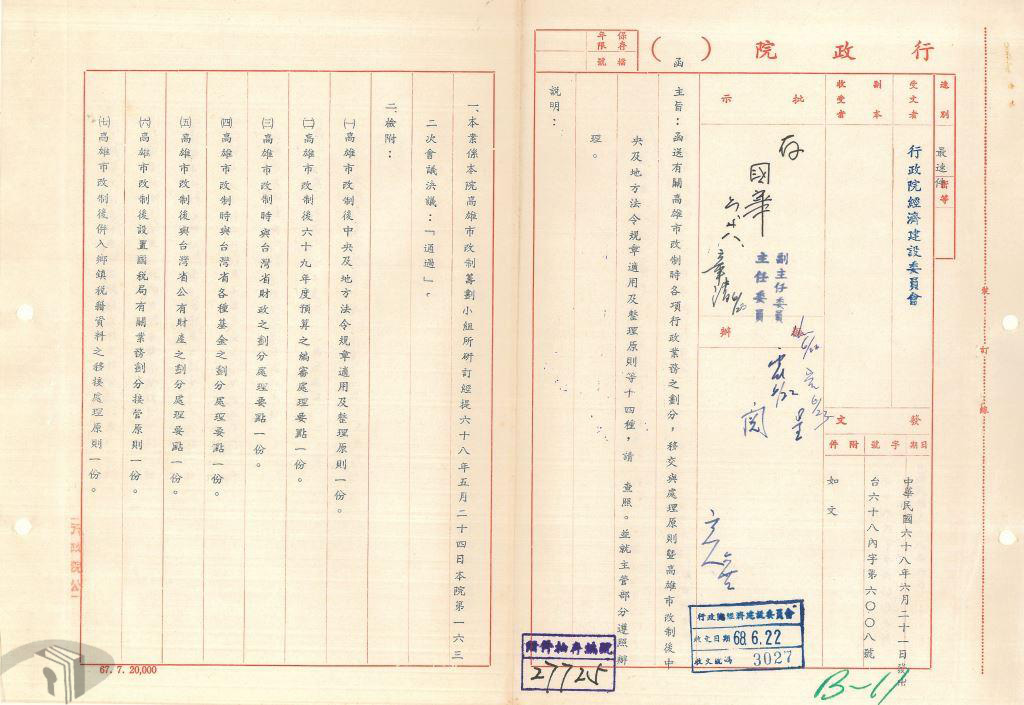 行政院（　）函
保存年限
檔號
速別
最速件
密等
受文者
行政院經濟建設委員會
副本收受者
發文
日期
中華民國六十八年六月二十一日發出
字號
台六十八內字第六〇〇八號
附件
如文
批示
擬辦
存
國華
副主任委員
主任委員
呈
閱
主旨：函送有關高雄市改制時各項行政業務之劃分，移交與處理原則暨高雄市改制後中
央及地方法令規章適用及整理原則等十四種，請　查照。並就主管部分遵照辦
理。
說明：
行政院經濟建設委員會
收文日期 68.6.22
收文號碼 3027
27725
B-11
號
訂
線
一、本案係本院高雄市改制籌劃小組所研訂經提六十八年五月二十四日本院第一六三
二次會議決議：「通過」。
二、檢附：
㈠高雄市改制後中央及地方法令規章適用及整理原則一份。
㈡高雄市改制後六十九年度預算之編審處理要點一份。
㈢高雄市改制時與台灣省財政之劃分處理要點一份。
㈣高雄市改制時與台灣省各種基金之劃分處理要點一份。
㈤高雄市改制後與台灣省公有財產之劃分處理要點一份。
㈥高雄市改制後設置國稅局有關業務劃分接管原則一份。
㈦高雄市改制後併入鄉鎮稅籍資料之移接處理原則一份。
行政院公
67. 7. 20,000